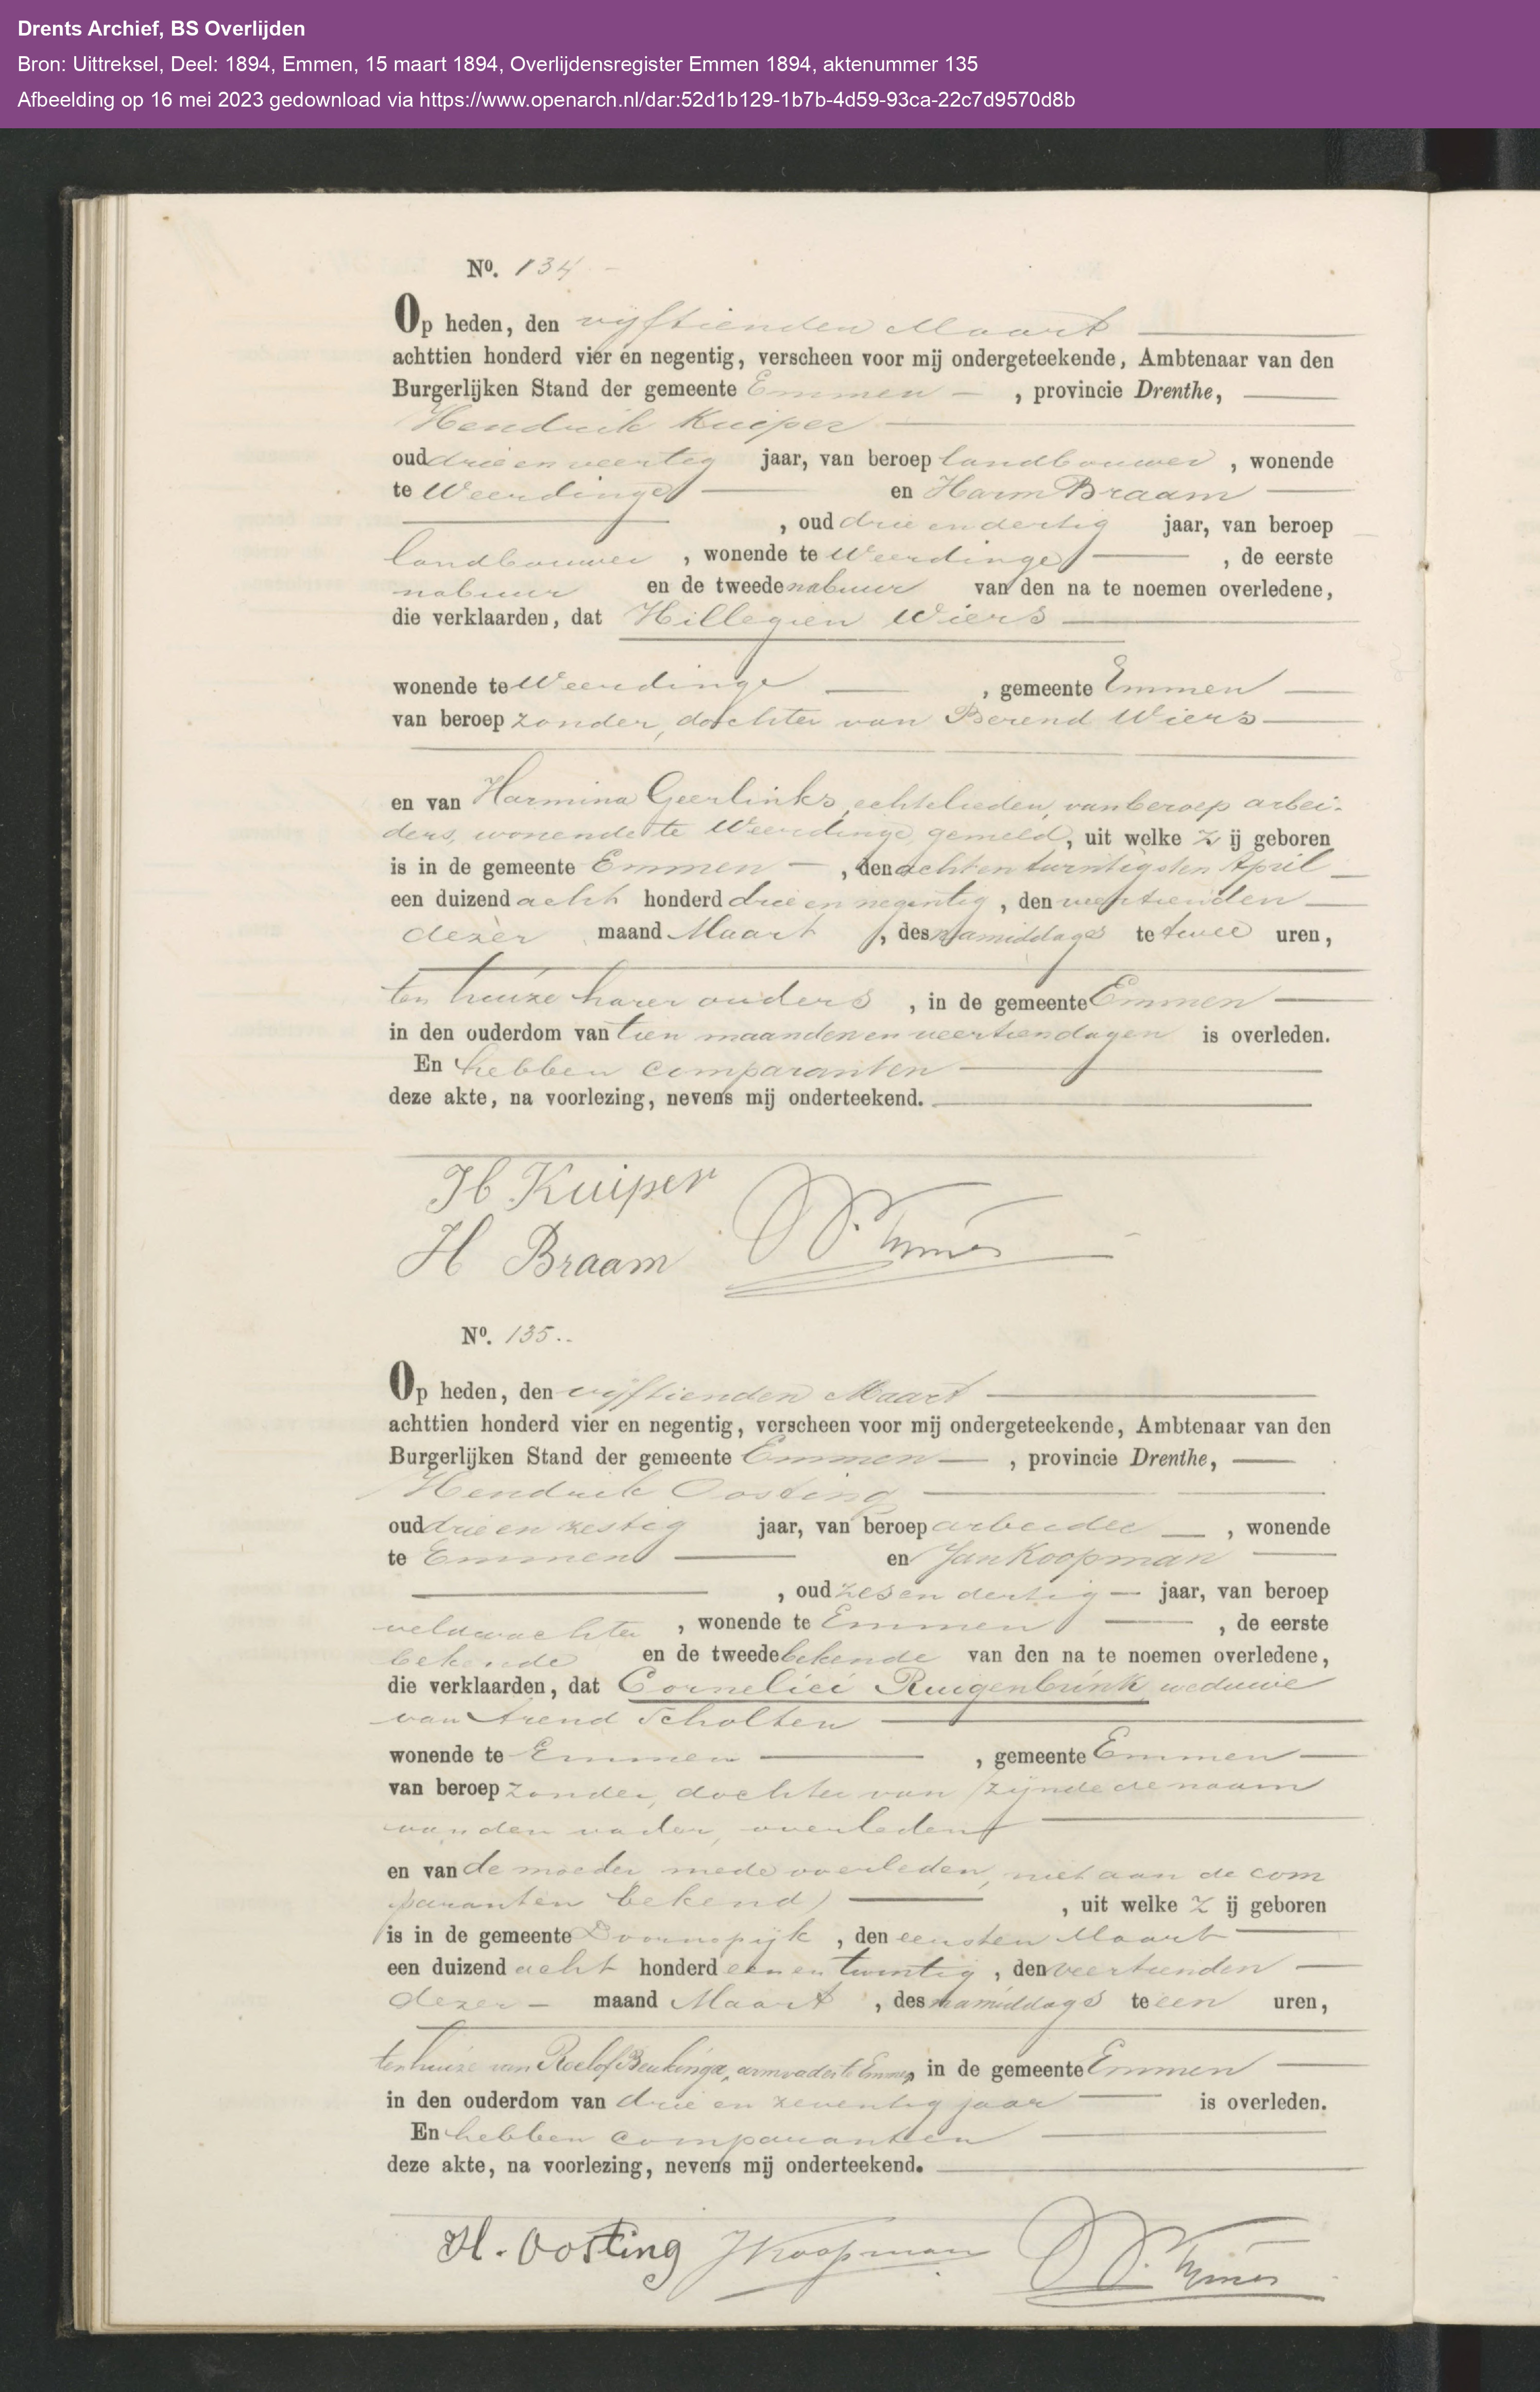 Drents Archief, BS Overlijden
Bron: Uittreksel, Deel: 1894, Emmen, 15 maart 1894, Overlijdensregister Emmen 1894, aktenummer 135
Afbeelding op 16 mei 2023 gedownload via https://www.openarch.nl/dar:52d1b129-1b7b-4d59-93ca-22c7d9570d8b
No. 134
Op heden, den vijftienden Maart
achttien honderd vier en negentig, verscheen voor mij ondergeteekende, Ambtenaar van den
Burgerlijken Stand der gemeente Emmen, provincie Drenthe,
Hendrik Kuiper
oud drie en veertig jaar, van beroep landbouwer, wonende
te Weerdinge en Harm Braam
, oud drie en dertig jaar, van beroep
landbouwer, wonende te Weerdinge, de eerste
nabuur en de tweede nabuur van den na te noemen overledene,
die verklaarden, dat Hillegien Wiers
wonende te Weerdinge, gemeente Emmen
van beroep zonder, dochter van Berend Wiers
en van Harmina Geerlinks, echtelieden, van beroep arbei-
ders, wonende te Weerdinge gemeld, uit welke zij geboren
is in de gemeente Emmen, den achtentwintigsten April
een duizend acht honderd drie en negentig, den veertienden
dezer maand Maart, des namiddags te twee uren,
ten huize harer ouders, in de gemeente Emmen
in den ouderdom van tien maanden en veertien dagen is overleden.
En hebben comparanten
deze akte, na voorlezing, nevens mij onderteekend.
H Kuiper
H Braam
No. 135.
Op heden, den vijftienden Maart
achttien honderd vier en negentig, verscheen voor mij ondergeteekende, Ambtenaar van den
Burgerlijken Stand der gemeente Emmen, provincie Drenthe,
Hendrik Oosting
oud drie en zestig jaar, van beroep arbeider, wonende
te Emmen en Jan Koopman
, oud zes en dertig jaar, van beroep
veldwachter, wonende te Emmen, de eerste
bekende en de tweede bekende van den na te noemen overledene,
die verklaarden, dat Cornelia Ruigenbrink, weduwe
van Arend Scholten
wonende te Emmen, gemeente Emmen
van beroep zonder, dochter van (zijnde de naam
van den vader, overleden
en van de moeder mede overleden, niet aan de com
paranten bekend), uit welke zij geboren
is in de gemeente Doornspijk, den eersten Maart
een duizend acht honderd een en twintig, den veertienden
dezer maand Maart, des namiddags te een uren,
ten huize van Roelof Beukinga, armvader te Emmen, in de gemeente Emmen
in den ouderdom van drie en zeventig jaar is overleden.
En hebben comparanten
deze akte, na voorlezing, nevens mij onderteekend.
H. Oosting JKoopman